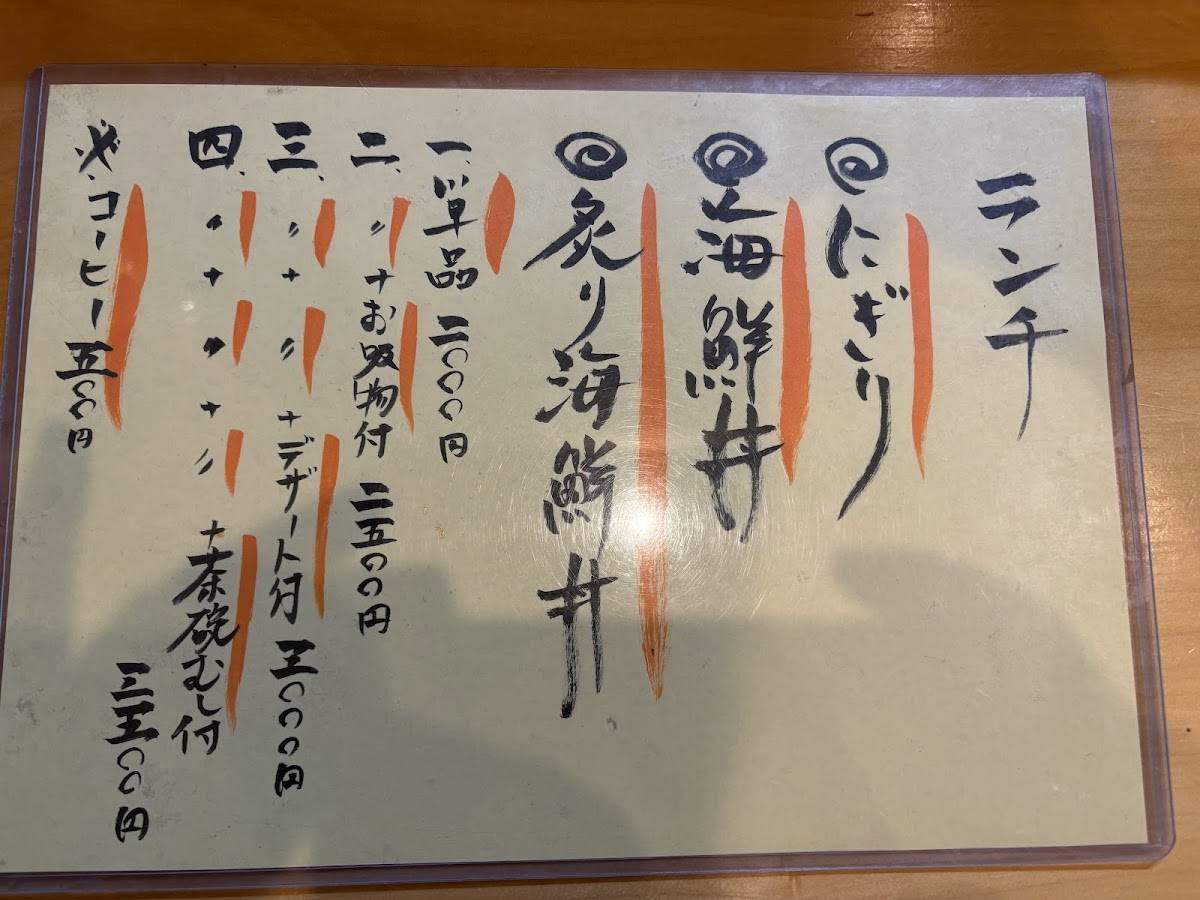 ランチ
◎にぎり
◎上海鮮丼
◎炙り海鮮丼
一、単品 二〇〇〇円
二、〃+お吸物付 二五〇〇円
三、〃+〃+デザート付 三〇〇〇円
四、〃+〃+〃+茶碗むし付 三五〇〇円
※コーヒー 五〇〇円